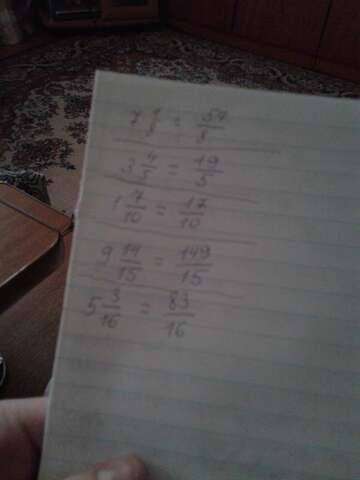 7 1/8 = 57/8
3 4/5 = 19/5
1 7/10 = 17/10
9 14/15 = 149/15
5 3/16 = 83/16